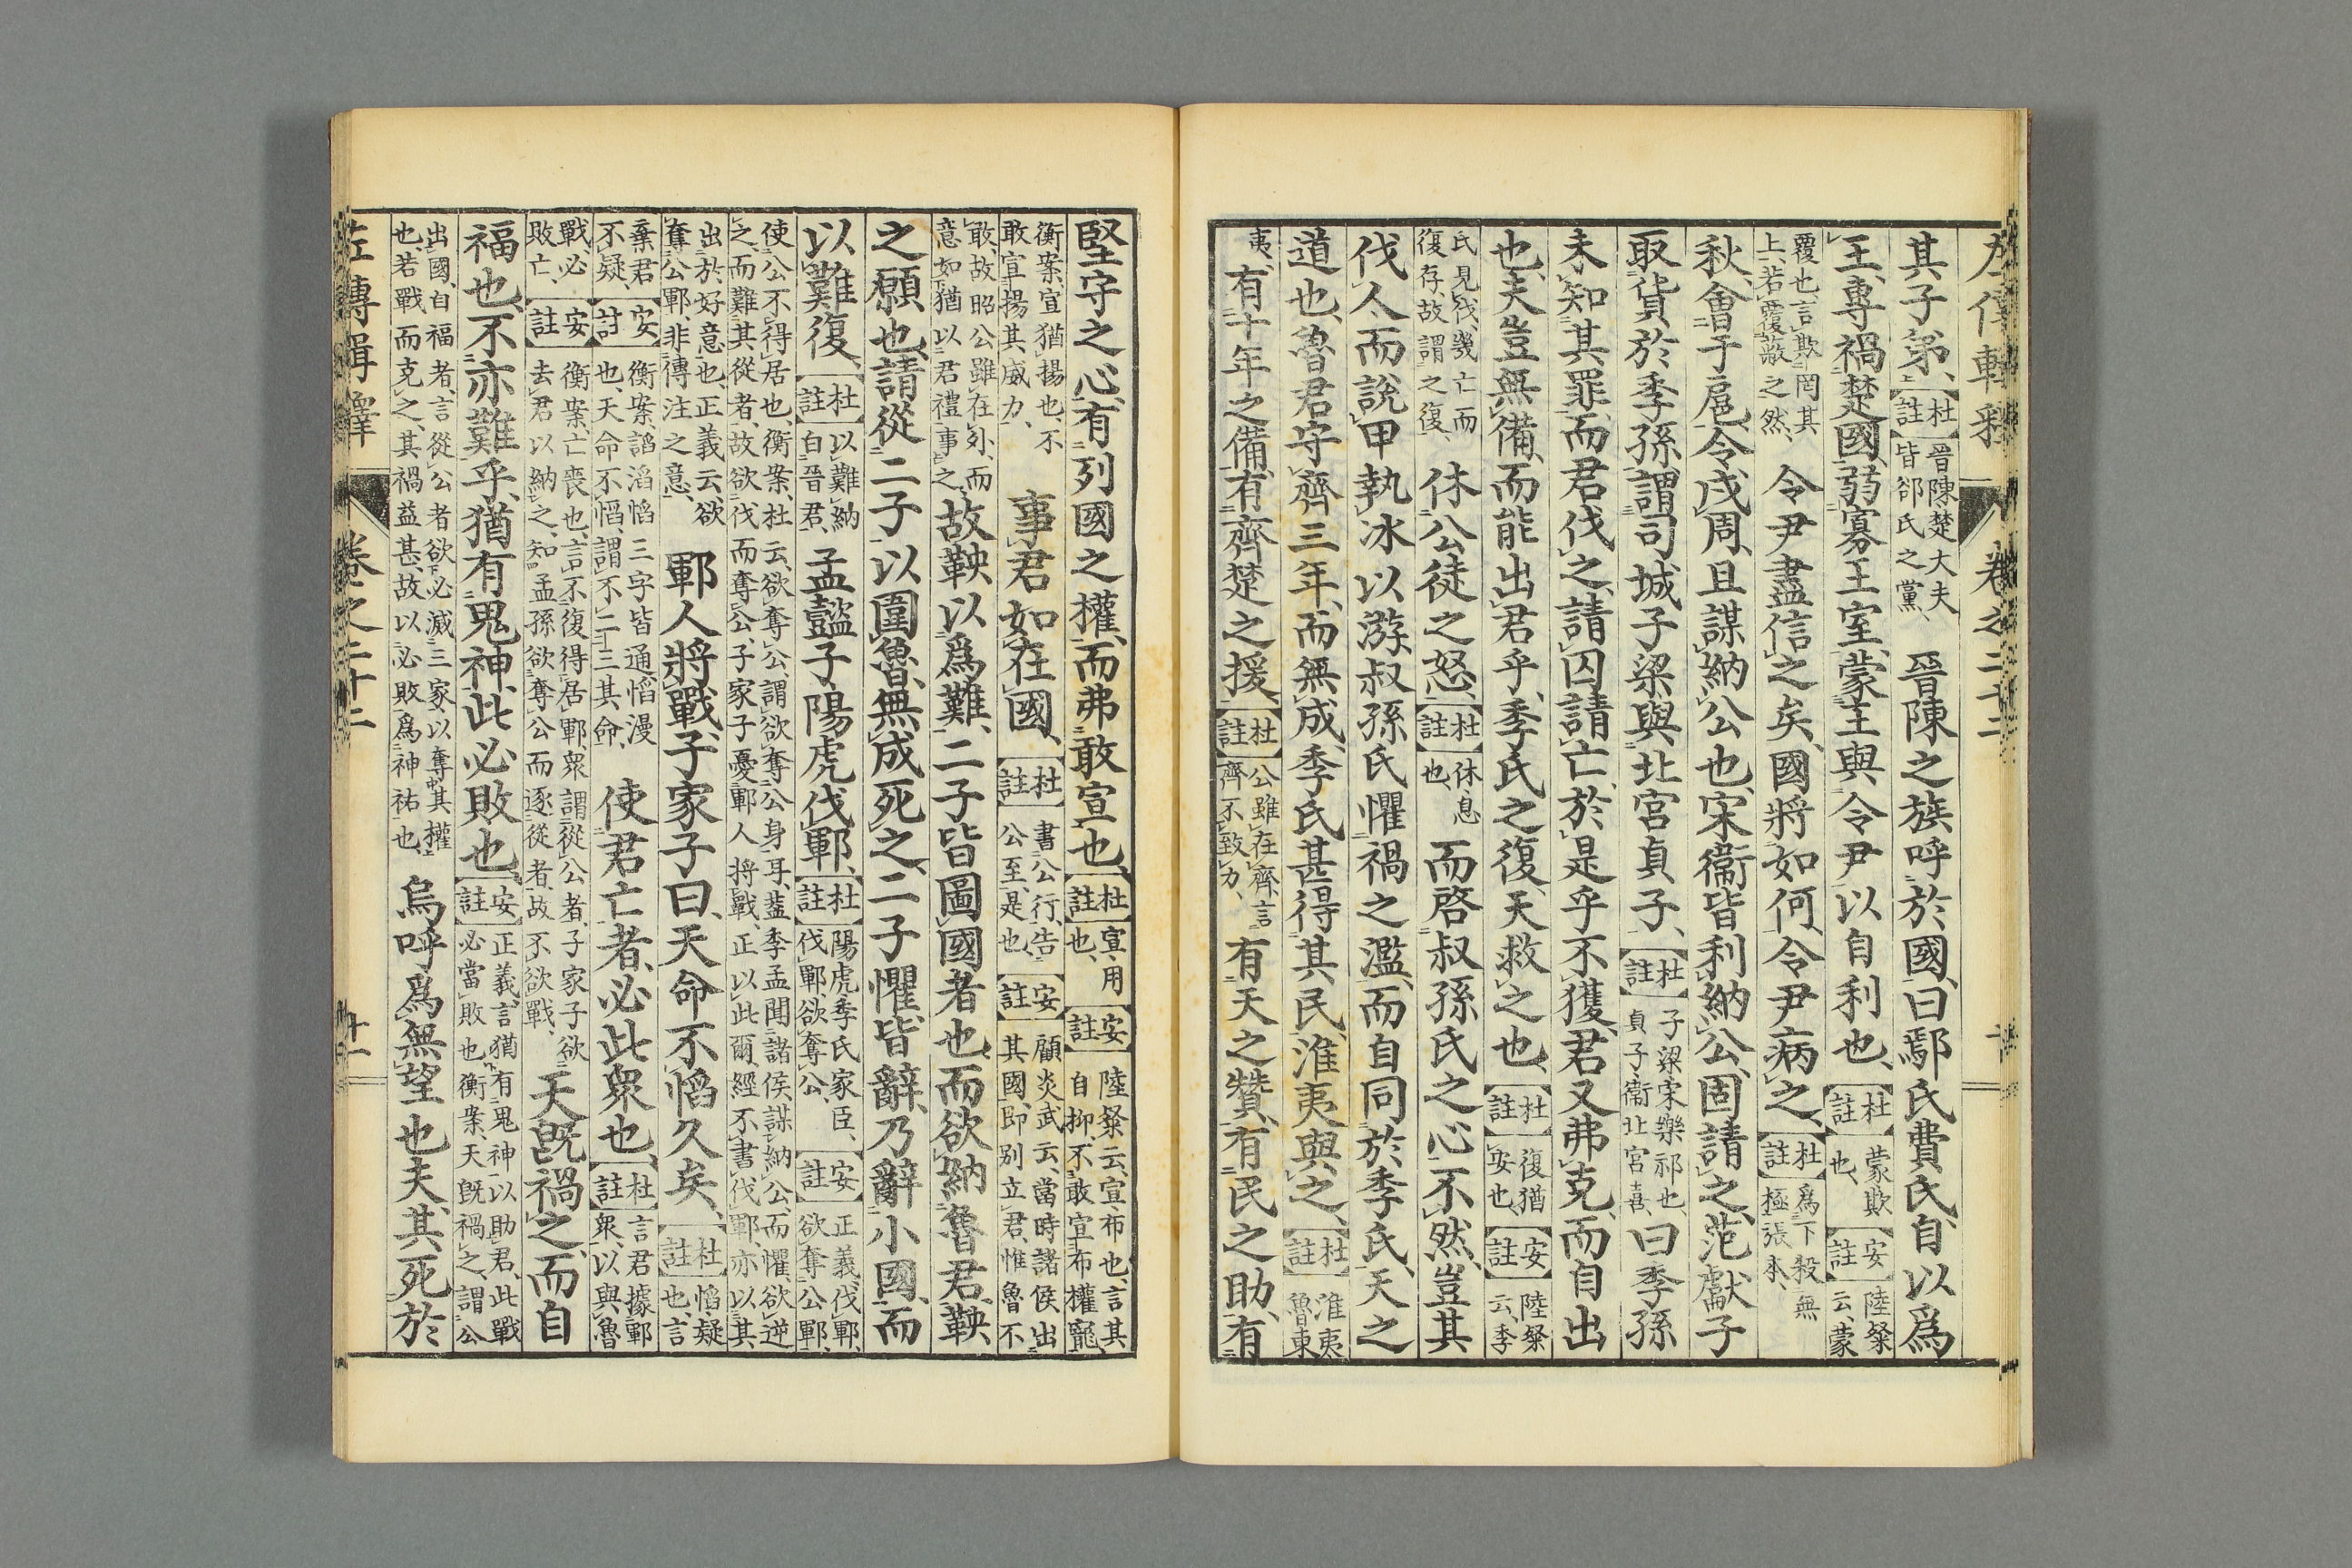 左傳輯釋 卷之二十二
其子弟、【杜註】晉陳楚大夫皆郤氏之黨、晉陳之族呼於國、曰鄢氏費氏、自以爲
王、專禍楚國、弱寡王室、蒙王與令尹以自利也、【杜註】蒙欺也、【安註】陸粲云、蒙
覆也、言欺罔其上、若覆蔽之然、令尹盡信之矣、國將如何、令尹病之、【杜註】爲下殺無極張本、
秋、會于扈、令戍周、且謀納公也、宋衞皆利納公、固請之、范獻子
取貨於季孫、謂司城子梁與北宮貞子、【杜註】子梁宋樂祁也、貞子衞北宮喜、曰季孫
未知其罪、而君伐之、請囚請亡、於是乎不獲、君又弗克、而自出
也、夫豈無備、而能出君乎、季氏之復、天救之也、【杜註】復猶安也、【安註】陸粲云、季
氏見伐、幾亡而復存、故謂之復、休公徒之怒、【杜註】休息也、而啓叔孫氏之心、不然、豈其
伐人而說甲執冰以游、叔孫氏懼禍之濫、而自同於季氏、天之
道也、魯君守齊三年、而無成、季氏甚得其民、淮夷與之、【杜註】淮夷魯東
夷、有十年之備、有齊楚之援、【杜註】公雖在齊、言齊不致力、有天之贊、有民之助、有
堅守之心、有列國之權、而弗敢宣也、【杜註】宣、用也、【安註】陸粲云、宣、布也、言其自抑、不敢宣布權寵、
衡案、宣猶揚也、不敢宣揚其威力、事君如在國、【杜註】書公行、告公至、是也、【安註】顧炎武云、當時諸侯出其國、卽別立君、惟魯不
敢、故昭公雖在外、而意如猶以君禮事之、故鞅以爲難、二子皆圖國者也、而欲納魯君、鞅
之願也、請從二子以圍魯、無成死之、二子懼、皆辭、乃辭小國、而
以難復、【杜註】以難納白晉君、孟懿子陽虎伐鄆、【杜註】陽虎季氏家臣、伐鄆、欲奪公、【安註】正義、伐鄆、欲奪公鄆、
使公不得居也、衡案、杜云、欲奪公、謂欲奪公身耳、蓋季孟聞諸侯謀納公、而懼、欲逆之、而難其從者、故欲伐而奪公、子家子憂鄆人將戰、正以此爾、經不書伐鄆、亦以其
出於好意也、正義云、欲奪公鄆、非傳注之意、鄆人將戰、子家子曰、天命不慆久矣、【杜註】慆、疑也、言
棄君不疑、【安註】衡案、謟滔慆三字皆通、慆漫也、天命不慆、謂不二三其命、使君亡者、必此衆也、【杜註】言君據鄆衆、以與魯
戰必敗亡、【安註】衡案、亡喪也、言不復得居鄆、衆謂從公者、子家子欲去君以納之、知孟孫欲奪公而逐從者、故不欲戰、天旣禍之、而自
福也、不亦難乎、猶有鬼神、此必敗也、【安註】正義、言猶有鬼神以助君、此戰必當敗也、衡案、天旣禍之、謂公
出國、自福者、言從公者欲必滅三家、以奪其權也、若戰而克之、其禍益甚、故以必敗爲神祐也、烏呼、爲無望也夫、其死於
左傳輯釋 卷之二十二 十一